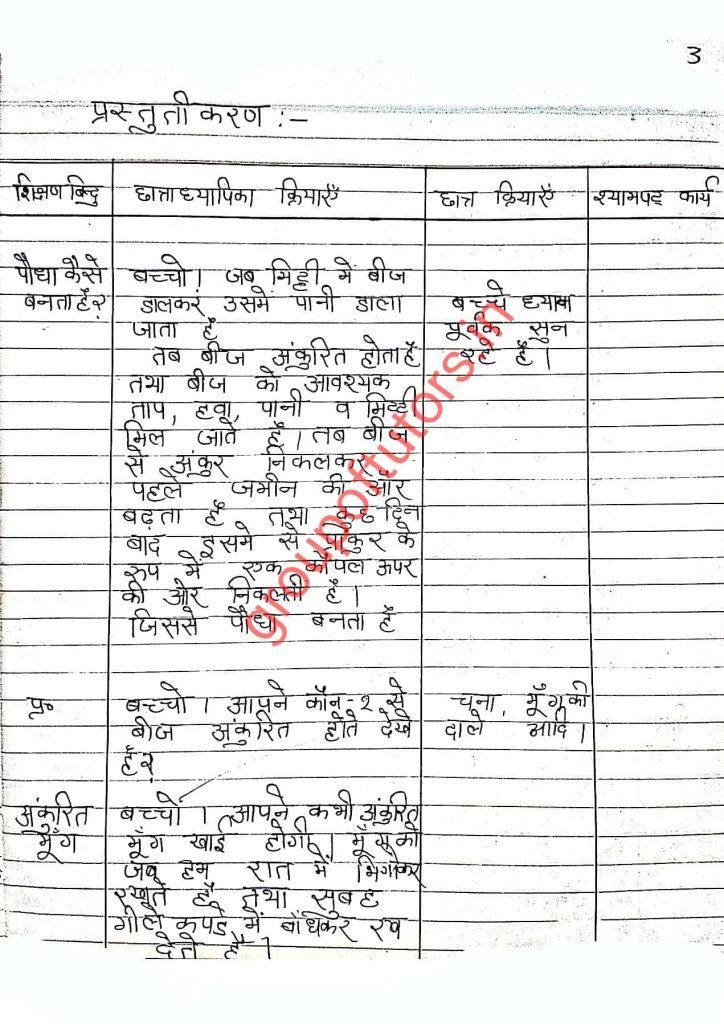 3
प्रस्तुतीकरण :-
शिक्षण बिन्दु छात्राध्यापिका क्रियाएँ छात्र क्रियाएँ श्यामपट कार्य
पौधा कैसे बच्चो। जब मिट्टी में बीज
बनता है? डालकर उसमे पानी डाला बच्चे ध्यान
जाता है पूर्वक सुन
तब बीज अंकुरित होता है रहे हैं।
तथा बीज को आवश्यक
ताप, हवा, पानी व मिट्टी
मिल जाते हैं। तब बीज
से अंकुर निकलकर
पहले जमीन की और
बढ़ता है तथा कुछ दिन
बाद इसमे से अंकुर के
रुप में एक कोंपल ऊपर
की और निकलती है।
जिससे पौधा बनता है
प्र० बच्चो। आपने कौन-२ से चना, मूँग की
बीज अंकुरित होते देखे दाले आदि।
हैं?
अंकुरित बच्चों। आपने कभी अंकुरित
मूँग मूँग खाई होगी। मूँग को
जब हम रात में भिगोकर
रखते हैं तथा सुबह
गीले कपड़े में बाँधकर रख
देते हैं।
groupoftutors.in